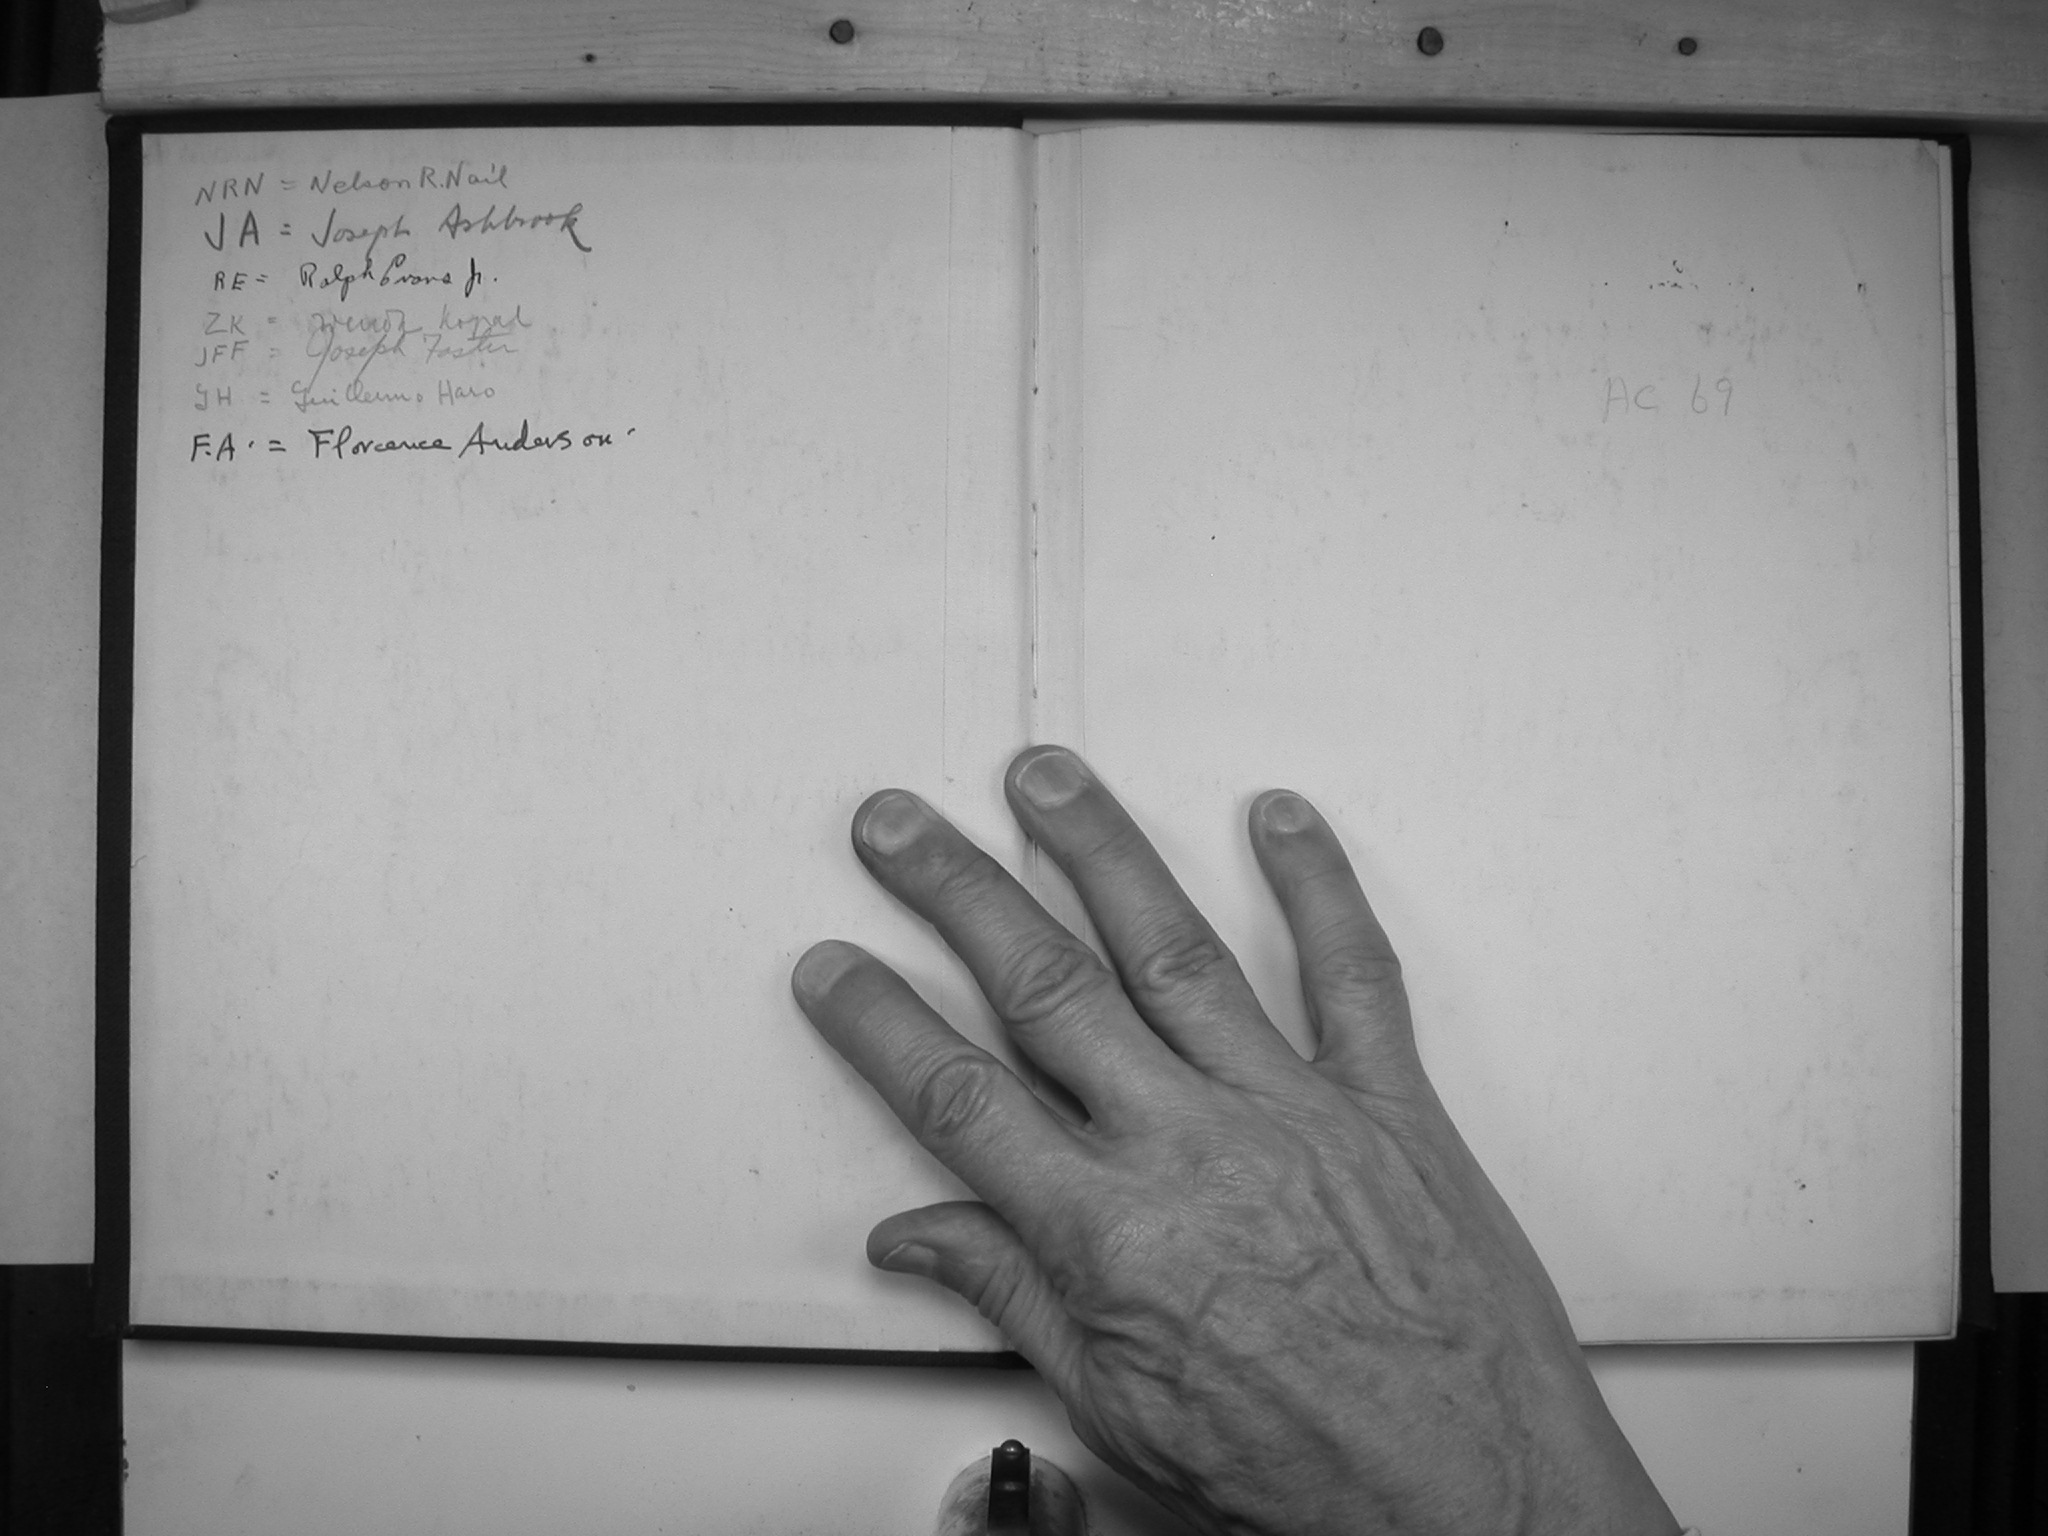 NRN = Nelson R. Nail
JA = Joseph Ashbrook
RE = Ralph Evans Jr.
ZK =
JFF = Joseph Foster
GH = Guillermo Haro
F.A. = Florence Anderson
AC 69